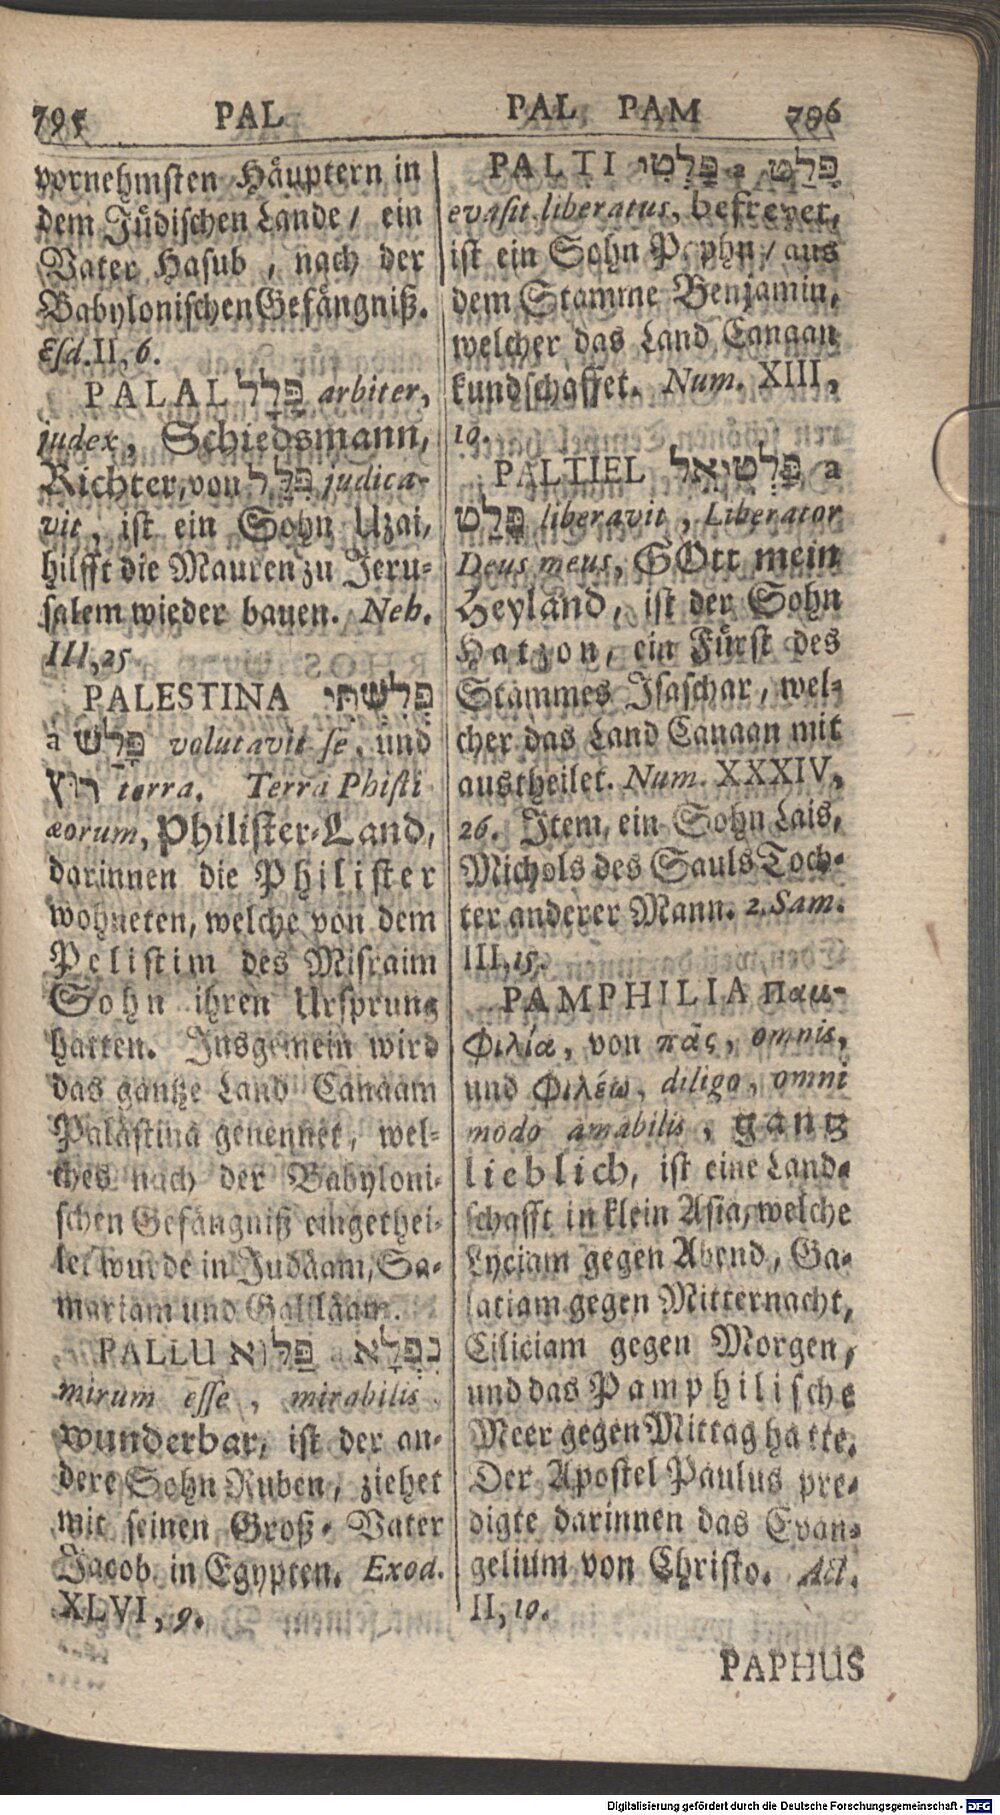 795 PAL
vornehmsten Häuptern in
dem Jüdischen Lande / ein
Vater Hasub, nach der
Babylonischen Gefängniß.
Esd. II, 6.
PALAL פָּלָל arbiter,
judex, Schiedsmann,
Richter, von פָּלַל judica-
vit, ist ein Sohn Uzai,
hilfft die Mauren zu Jeru-
salem wieder bauen. Neh.
III, 25.
PALESTINA פְּלִשְׁתִּי
a פָּלַשׁ volutavit se, und
רוץ terra. Terra Phisti
æorum, Philister-Land,
darinnen die Philister
wohneten, welche von dem
Pelistim des Misraim
Sohn ihren Ursprung
hatten. Insgemein wird
das gantze Land Canaam
Palästina genennet, wel-
ches nach der Babyloni-
schen Gefängniß eingethei-
let wurde in Judäam, Sa-
mariam und Galiläam.
PALLU פַּלּוּא נִפְלָא
mirum esse, mirabilis
wunderbar, ist der an-
dere Sohn Ruben, ziehet
mit seinen Groß-Vater
Jacob in Egypten. Exod.
XLVI, 9.
PAL PAM 796
PALTI פַּלְטִי a פָּלַט
evasit liberatus, befreyet,
ist ein Sohn Raphu / aus
dem Stamme Benjamin,
welcher das Land Canaan
kundschaffet. Num. XIII,
10.
PALTIEL פַּלְטִיאֵל a
פָּלַט liberavit, Liberator
Deus meus, GOtt mein
Heyland, ist der Sohn
Hatzon, ein Fürst des
Stammes Isaschar, wel-
cher das Land Canaan mit
austheilet. Num. XXXIV,
26. Item, ein Sohn Lais,
Michols des Sauls Toch-
ter anderer Mann. 2. Sam.
III, 15.
PAMPHILIA Παμ-
Φιλία, von πᾶς, omnis,
und Φιλέω, diligo, omni
modo amabilis, gantz
lieblich, ist eine Land-
schafft in klein Asia, welche
Lyciam gegen Abend, Ga-
latiam gegen Mitternacht,
Ciliciam gegen Morgen,
und das Pamphilische
Meer gegen Mittag hatte.
Der Apostel Paulus pre-
digte darinnen das Evan-
gelium von Christo. Act.
II, 10.
PAPHUS
Digitalisierung gefördert durch die Deutsche Forschungsgemeinschaft - DFG